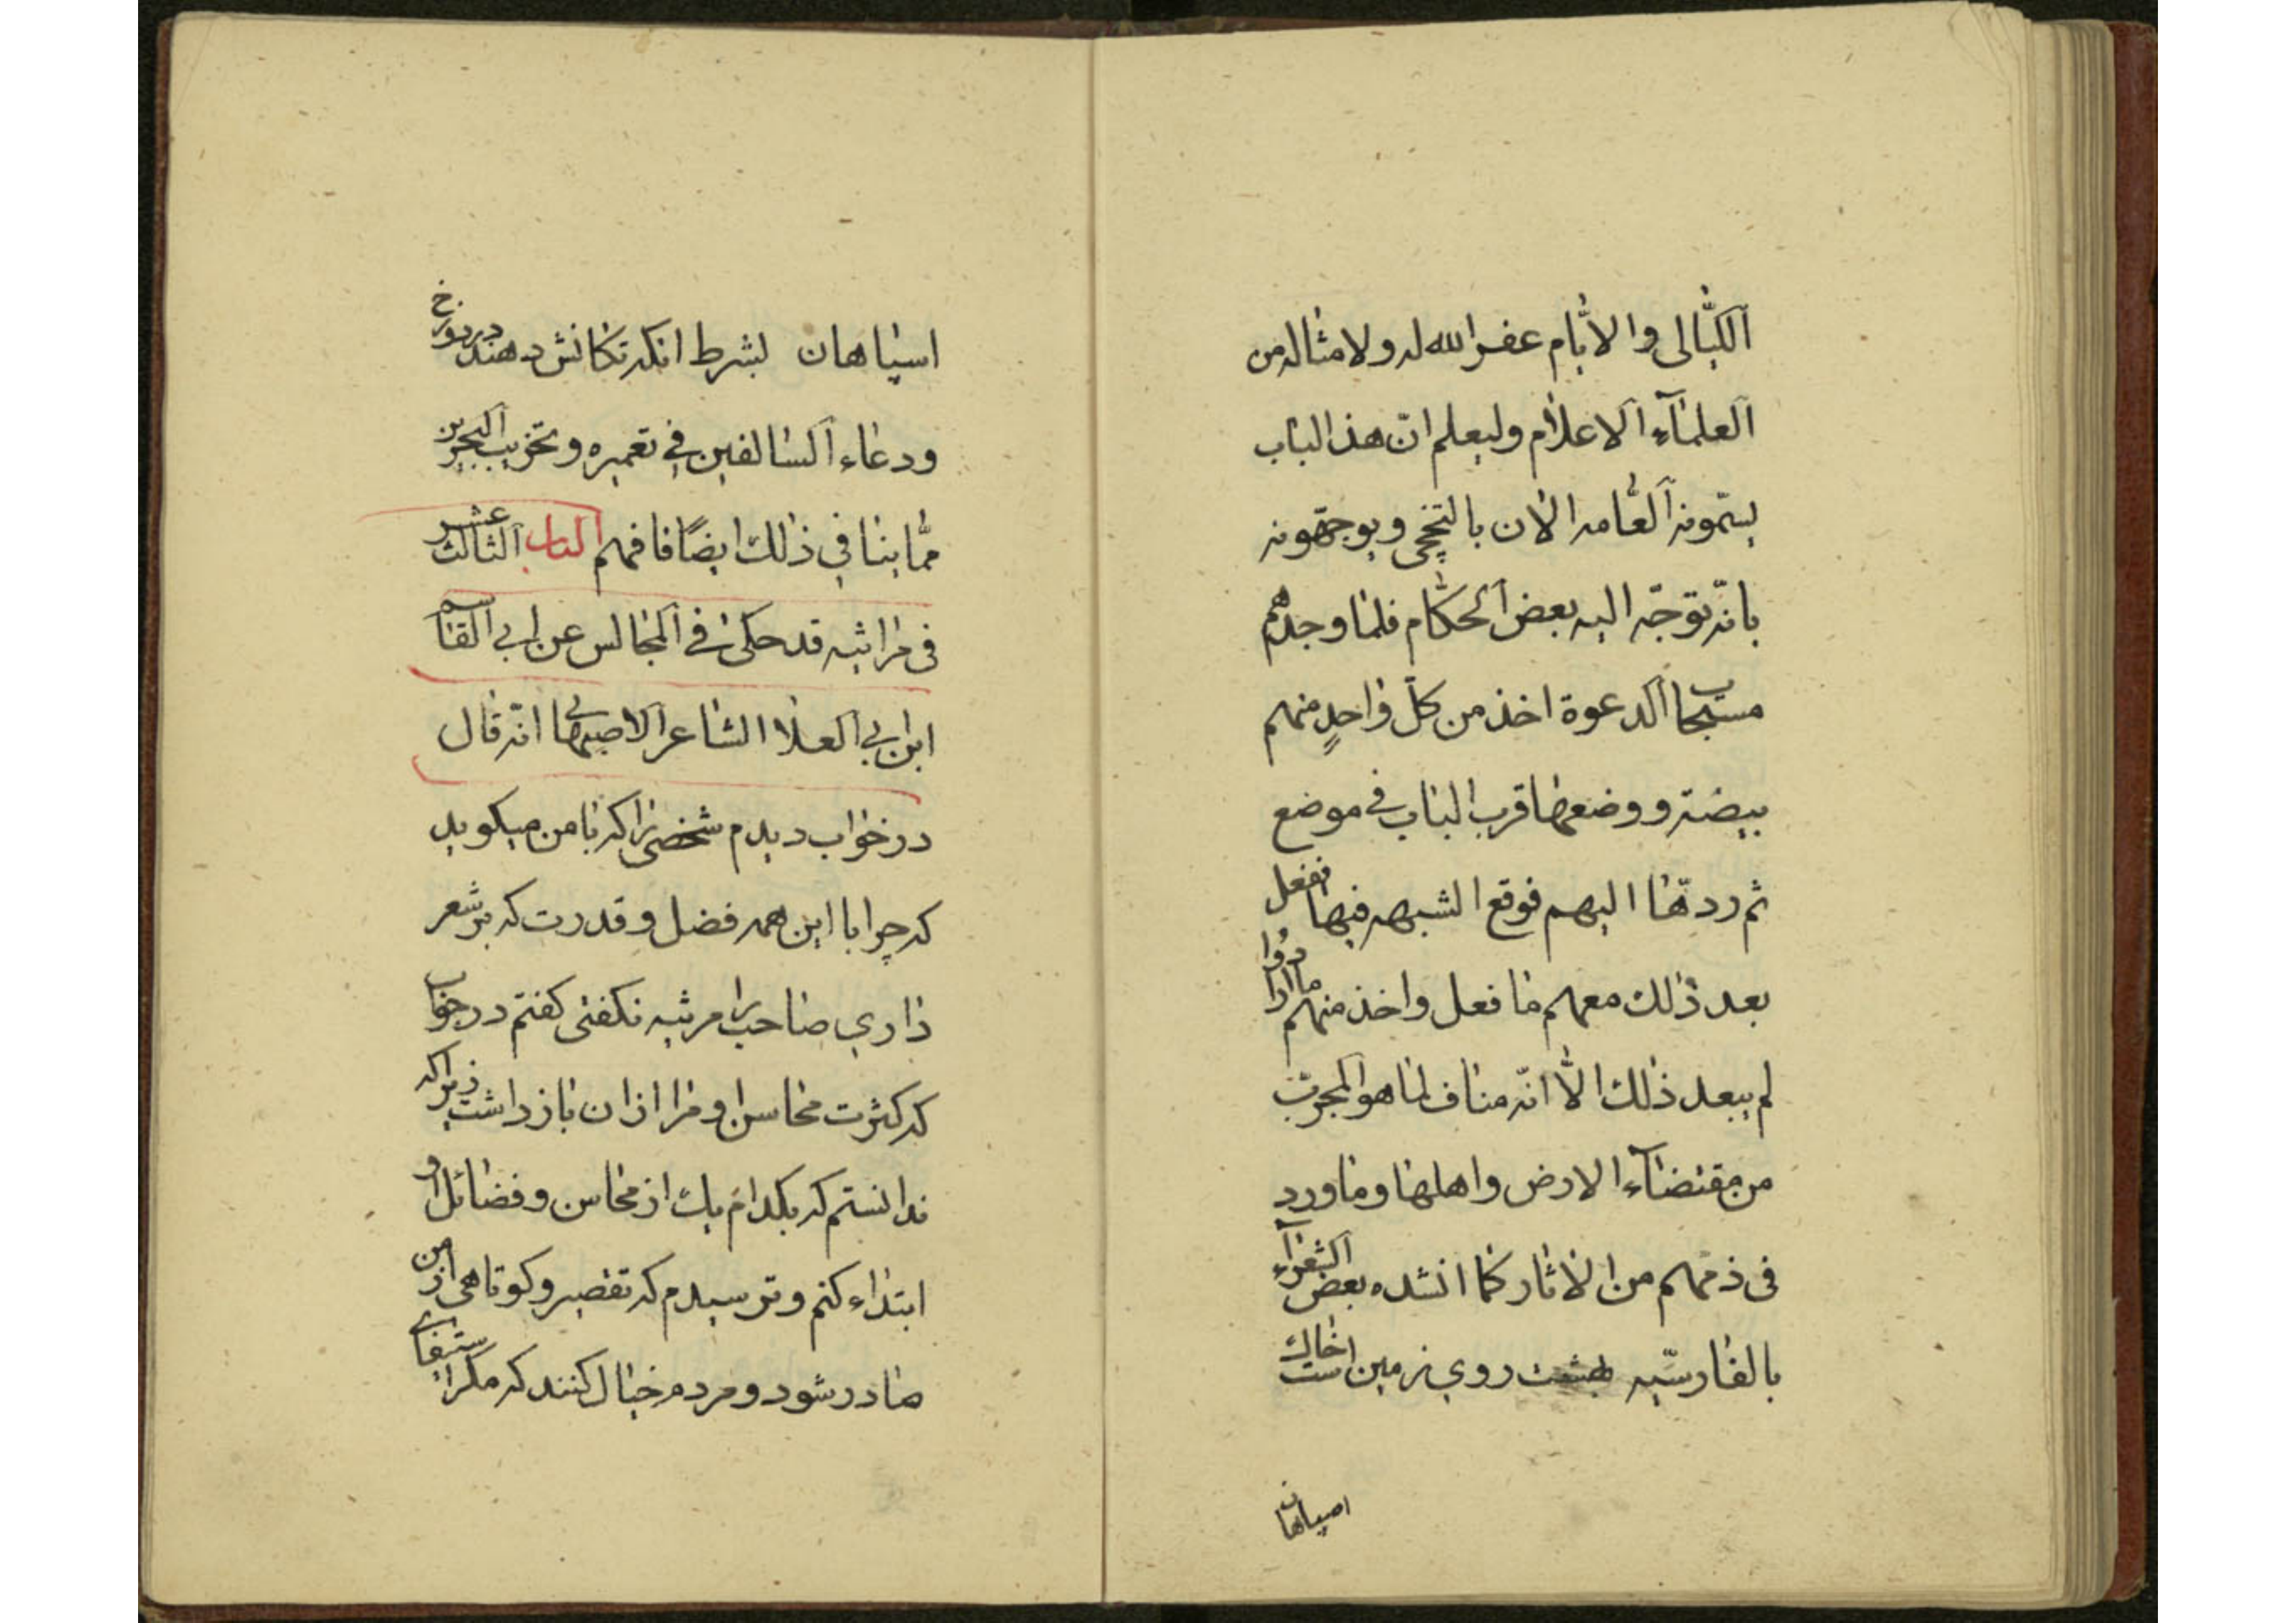 اللّیالی والایّام عفر الله له ولامثاله من
العلمآء الاعلام ولیعلم انّ هذ الباب
یسمّونه العّامه الان بالتخچی ویوجّهونه
بانّه توجّه الیه بعض الحکّام فلما وجدهم
مستجابا الدعوة اخذ من کلّ واحدٍ منهم
بیضة ووضعها قرب الباب فی موضع
ثم ردّها الیهم فوقع الشبهه فیها ففعل
بعد ذلك معهم ما فعل واخذ منهم ما ارادوا
لم یبعد ذلك الّا انّه مناف لما هو المجرب
من مقتضآء الارض واهلها وما ورد
فی ذمّهم من الاثار کما انشده بعض الشعرآء
بالفارسّیه بهشت روی زمین است خاك
اصپاهان
اسپاهان بشرط انکه تکانش دهند در دوزخ
ودعاء السالفین فی تعمیره وتخریب البحرین
ممّا ینافی ذلك ایضًا فافهم الباب الثالث عشر
فی مراثیه قد حکی فی المجالس عن ابی القاسم
ابن ابی العلا الشاعر الاصبهانی انّه قال
در خواب دیدم شخصی را که بامن میکوید
که چرا با این همه فضل وقدرت که بر شعر
داری صاحب را مرثیه نکفتی کفتم در جواب
که کثرت محاسن او مرا ازان باز داشت زیرا که
ندانستم که بکدام یك از محاسن وفضائل او
ابتداء کنم وترسیدم که تقصیر وکوتاهی از من
صادر شود ومردم خیال کنند که مکر استیفای